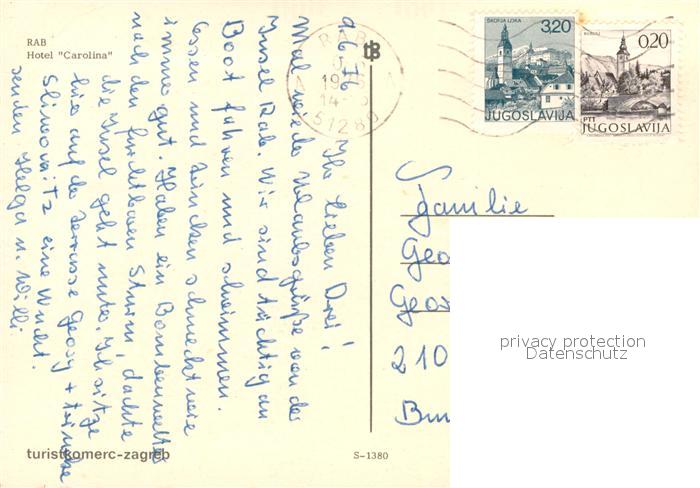 RAB
Hotel "Carolina"
9.6.76
Ihr lieben Drei!
Mal wieder Urlaubsgrüße von der
Insel Rab. Wir sind tüchtig am
Boot fahren und schwimmen.
Essen und Trinken schmeckt wie
immer gut. Haben ein Bombenwetter
nach den furchtbaren Sturm, dachte
die Insel geht unter. Ich sitze
hier auf der Terrasse Georg + trinke
Slivovitz eine Wucht.
senden Helga u. Willi
turistkomerc-zagreb
S-1380
RAB
51280
ŠKOFJA LOKA
3,20
JUGOSLAVIJA
BOHINJ
0,20
PTT
JUGOSLAVIJA
Familie
Geo
Geor
210
privacy protection
Datenschutz